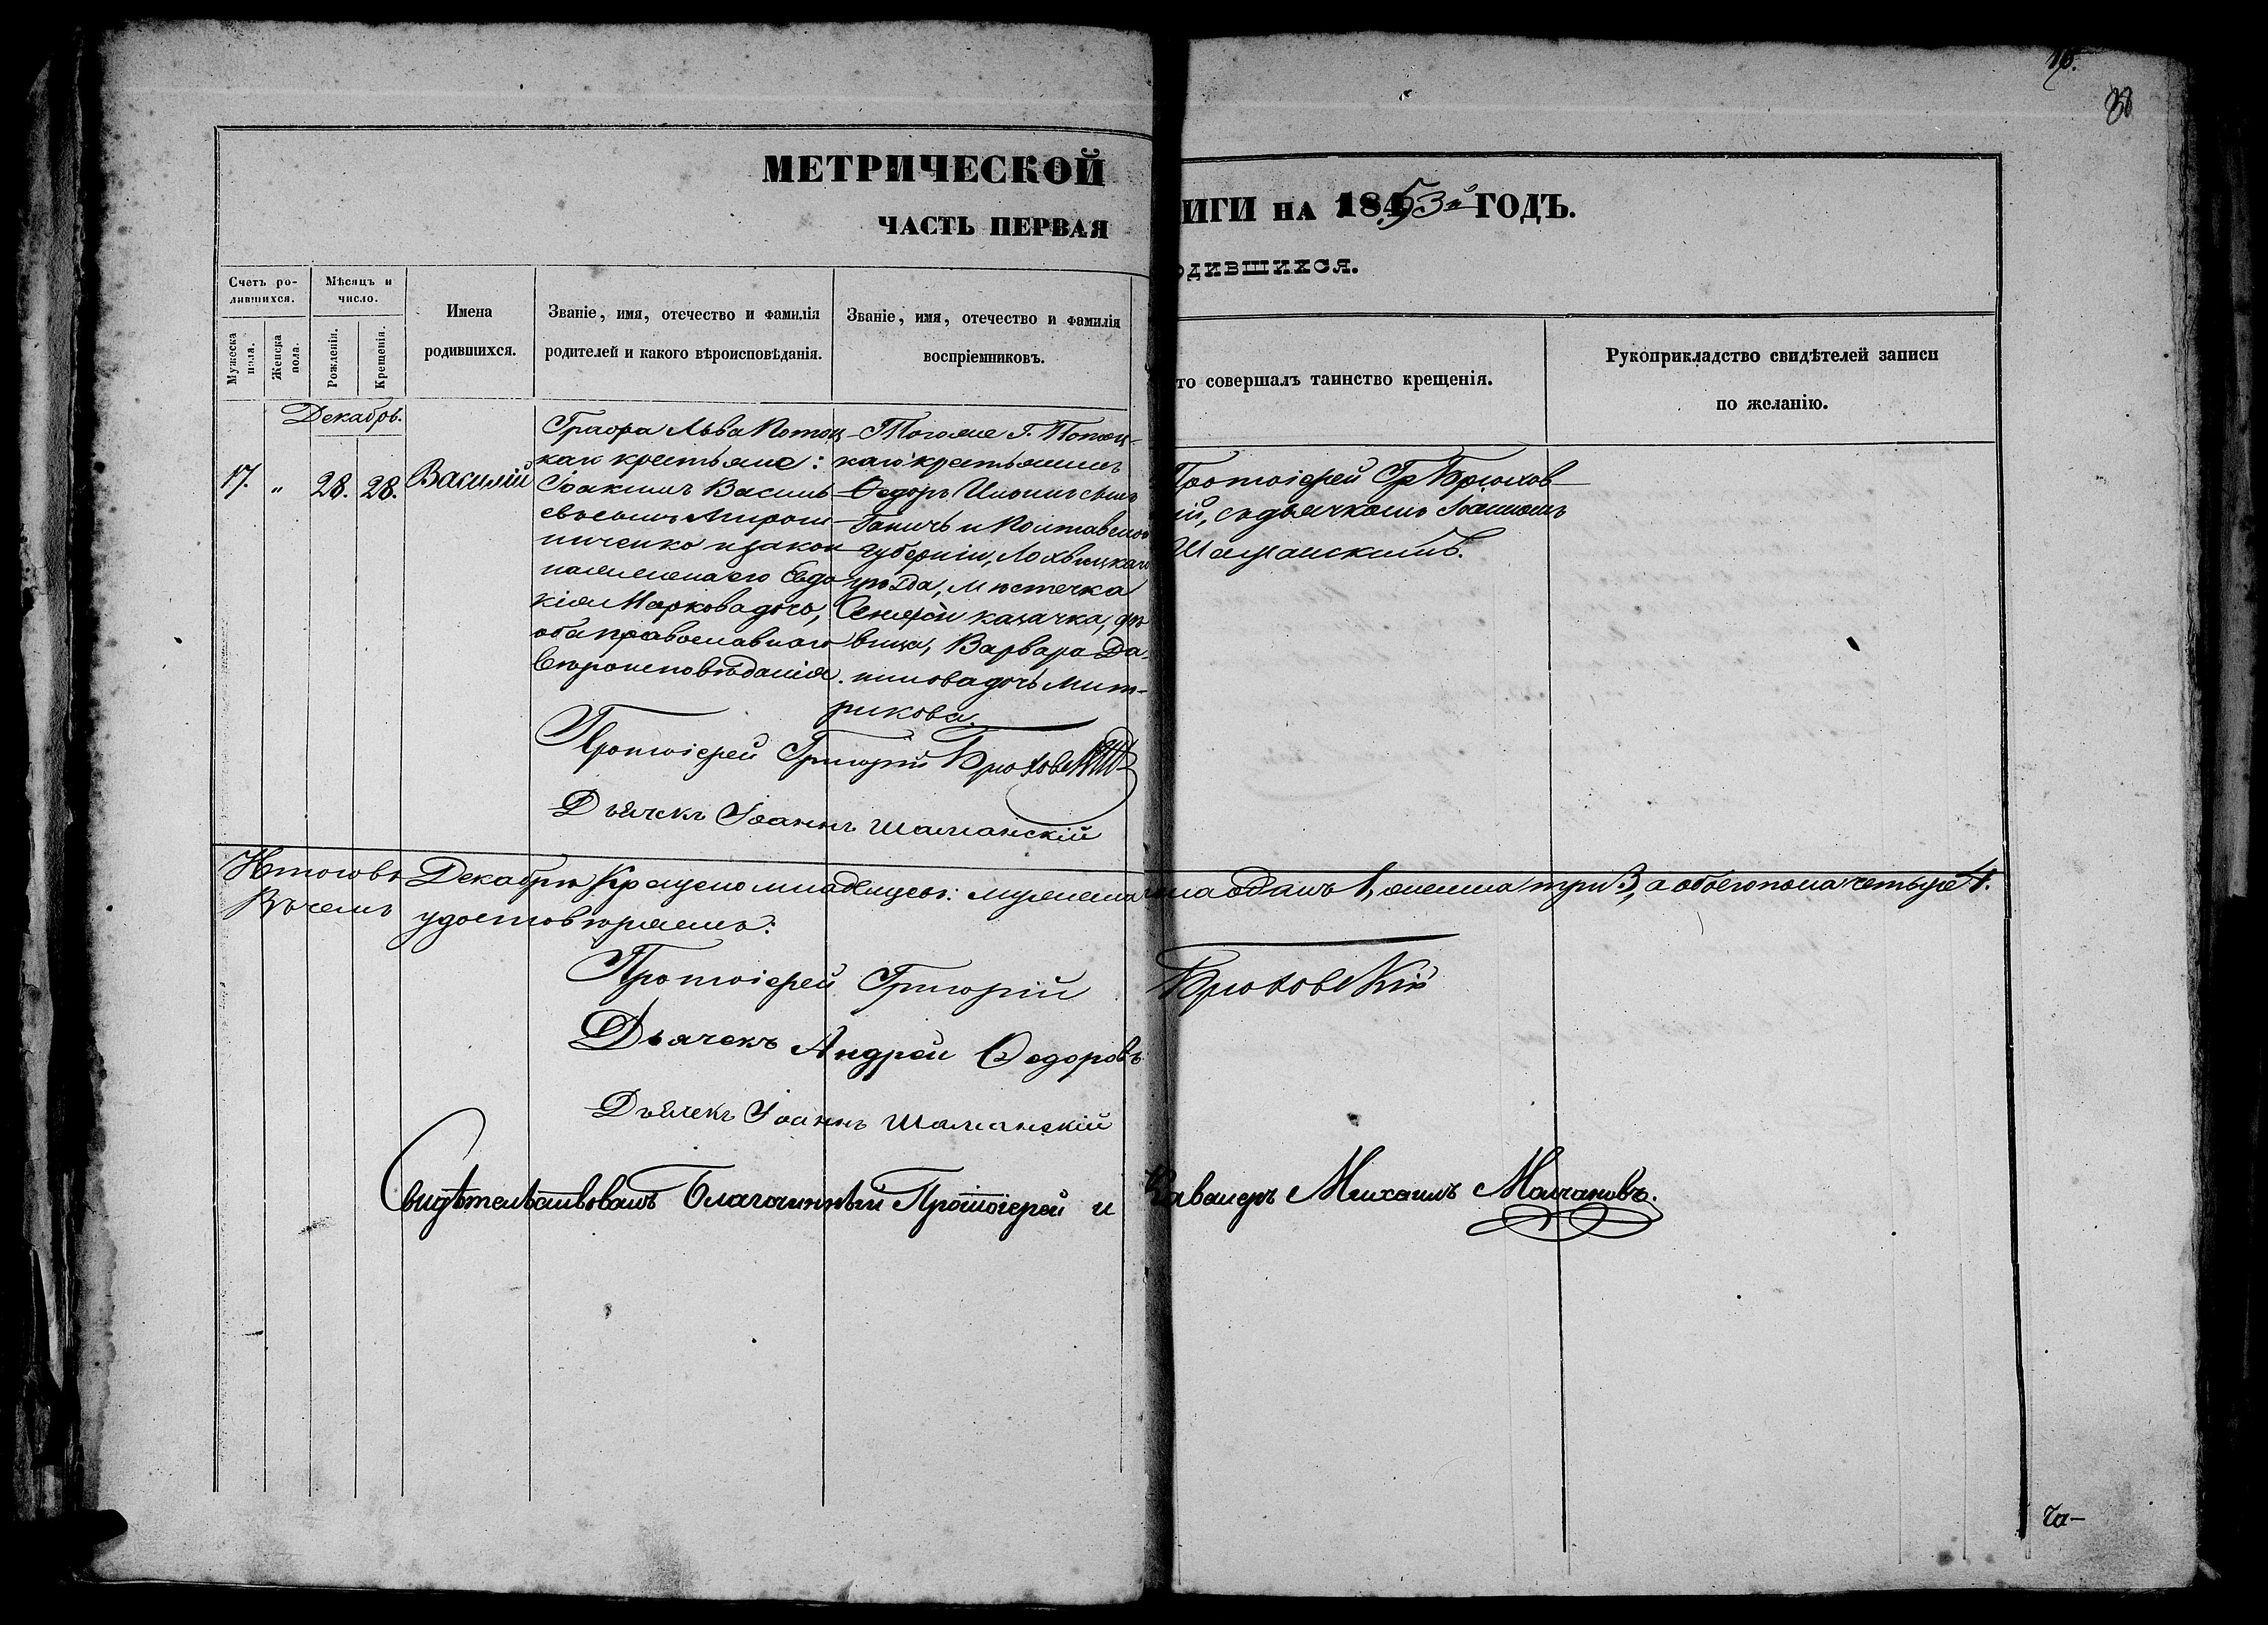 16.
38
МЕТРИЧЕСКОЙ
ИГИ НА 1853й ГОДЪ.
ЧАСТЬ ПЕРВАЯ
ОДИВШИХСЯ.
Счетъ ро-
дившихся.
Мужеска пола.
Женска пола.
Мѣсяцъ и
число.
Рожденія.
Крещенія.
Имена
родившихся.
Званіе, имя, отечество и фамилія
родителей и какого вѣроисповѣданія.
Званіе, имя, отечество и фамилія
воспріемниковъ.
то совершалъ таинство крещенія.
Рукоприкладство свидѣтелей записи
по желанію.
Декабрь.
17.
"
28.
28.
Василій
Графа Льва Потоц-
каго крестьяне:
Іоакимъ Василь-
евъ сынъ Мирош-
ниченко и закон-
ная жена его Евдо-
кія Маркова дочь,
оба православнаго
вѣроисповѣданія.
Тогоже Г. Потоц-
каго крестьянинъ
Ѳедоръ сынъ
и Полтавской
губерніи, Лохвицкаго
уѣзда, мѣстечка
Сенчи казачка, дѣ-
вица, Варвара Да-
нилова дочь Мит-
рикова.
Протоіерей Гр Брюхов-
ій, съ дьячкомъ Іоанномъ
Шаманскимъ.
Протоіерей Григорій Брюхов
Дьячекъ Іоаннъ Шаманскій
Итого въ Декабрѣ крещено младенцевъ: мужеска пола одинъ 1, женска три 3, а обоего пола четыре 4.
Въ чемъ удостовѣряемъ:
Протоіерей Григорій Брюховскій
Дьячекъ Андрей Ѳедоровъ
Дьячекъ Іоаннъ Шаманскій
Свидѣтельствовалъ Благочинный Протоіерей и Кавалеръ Михаилъ Молчановъ.
Ча-